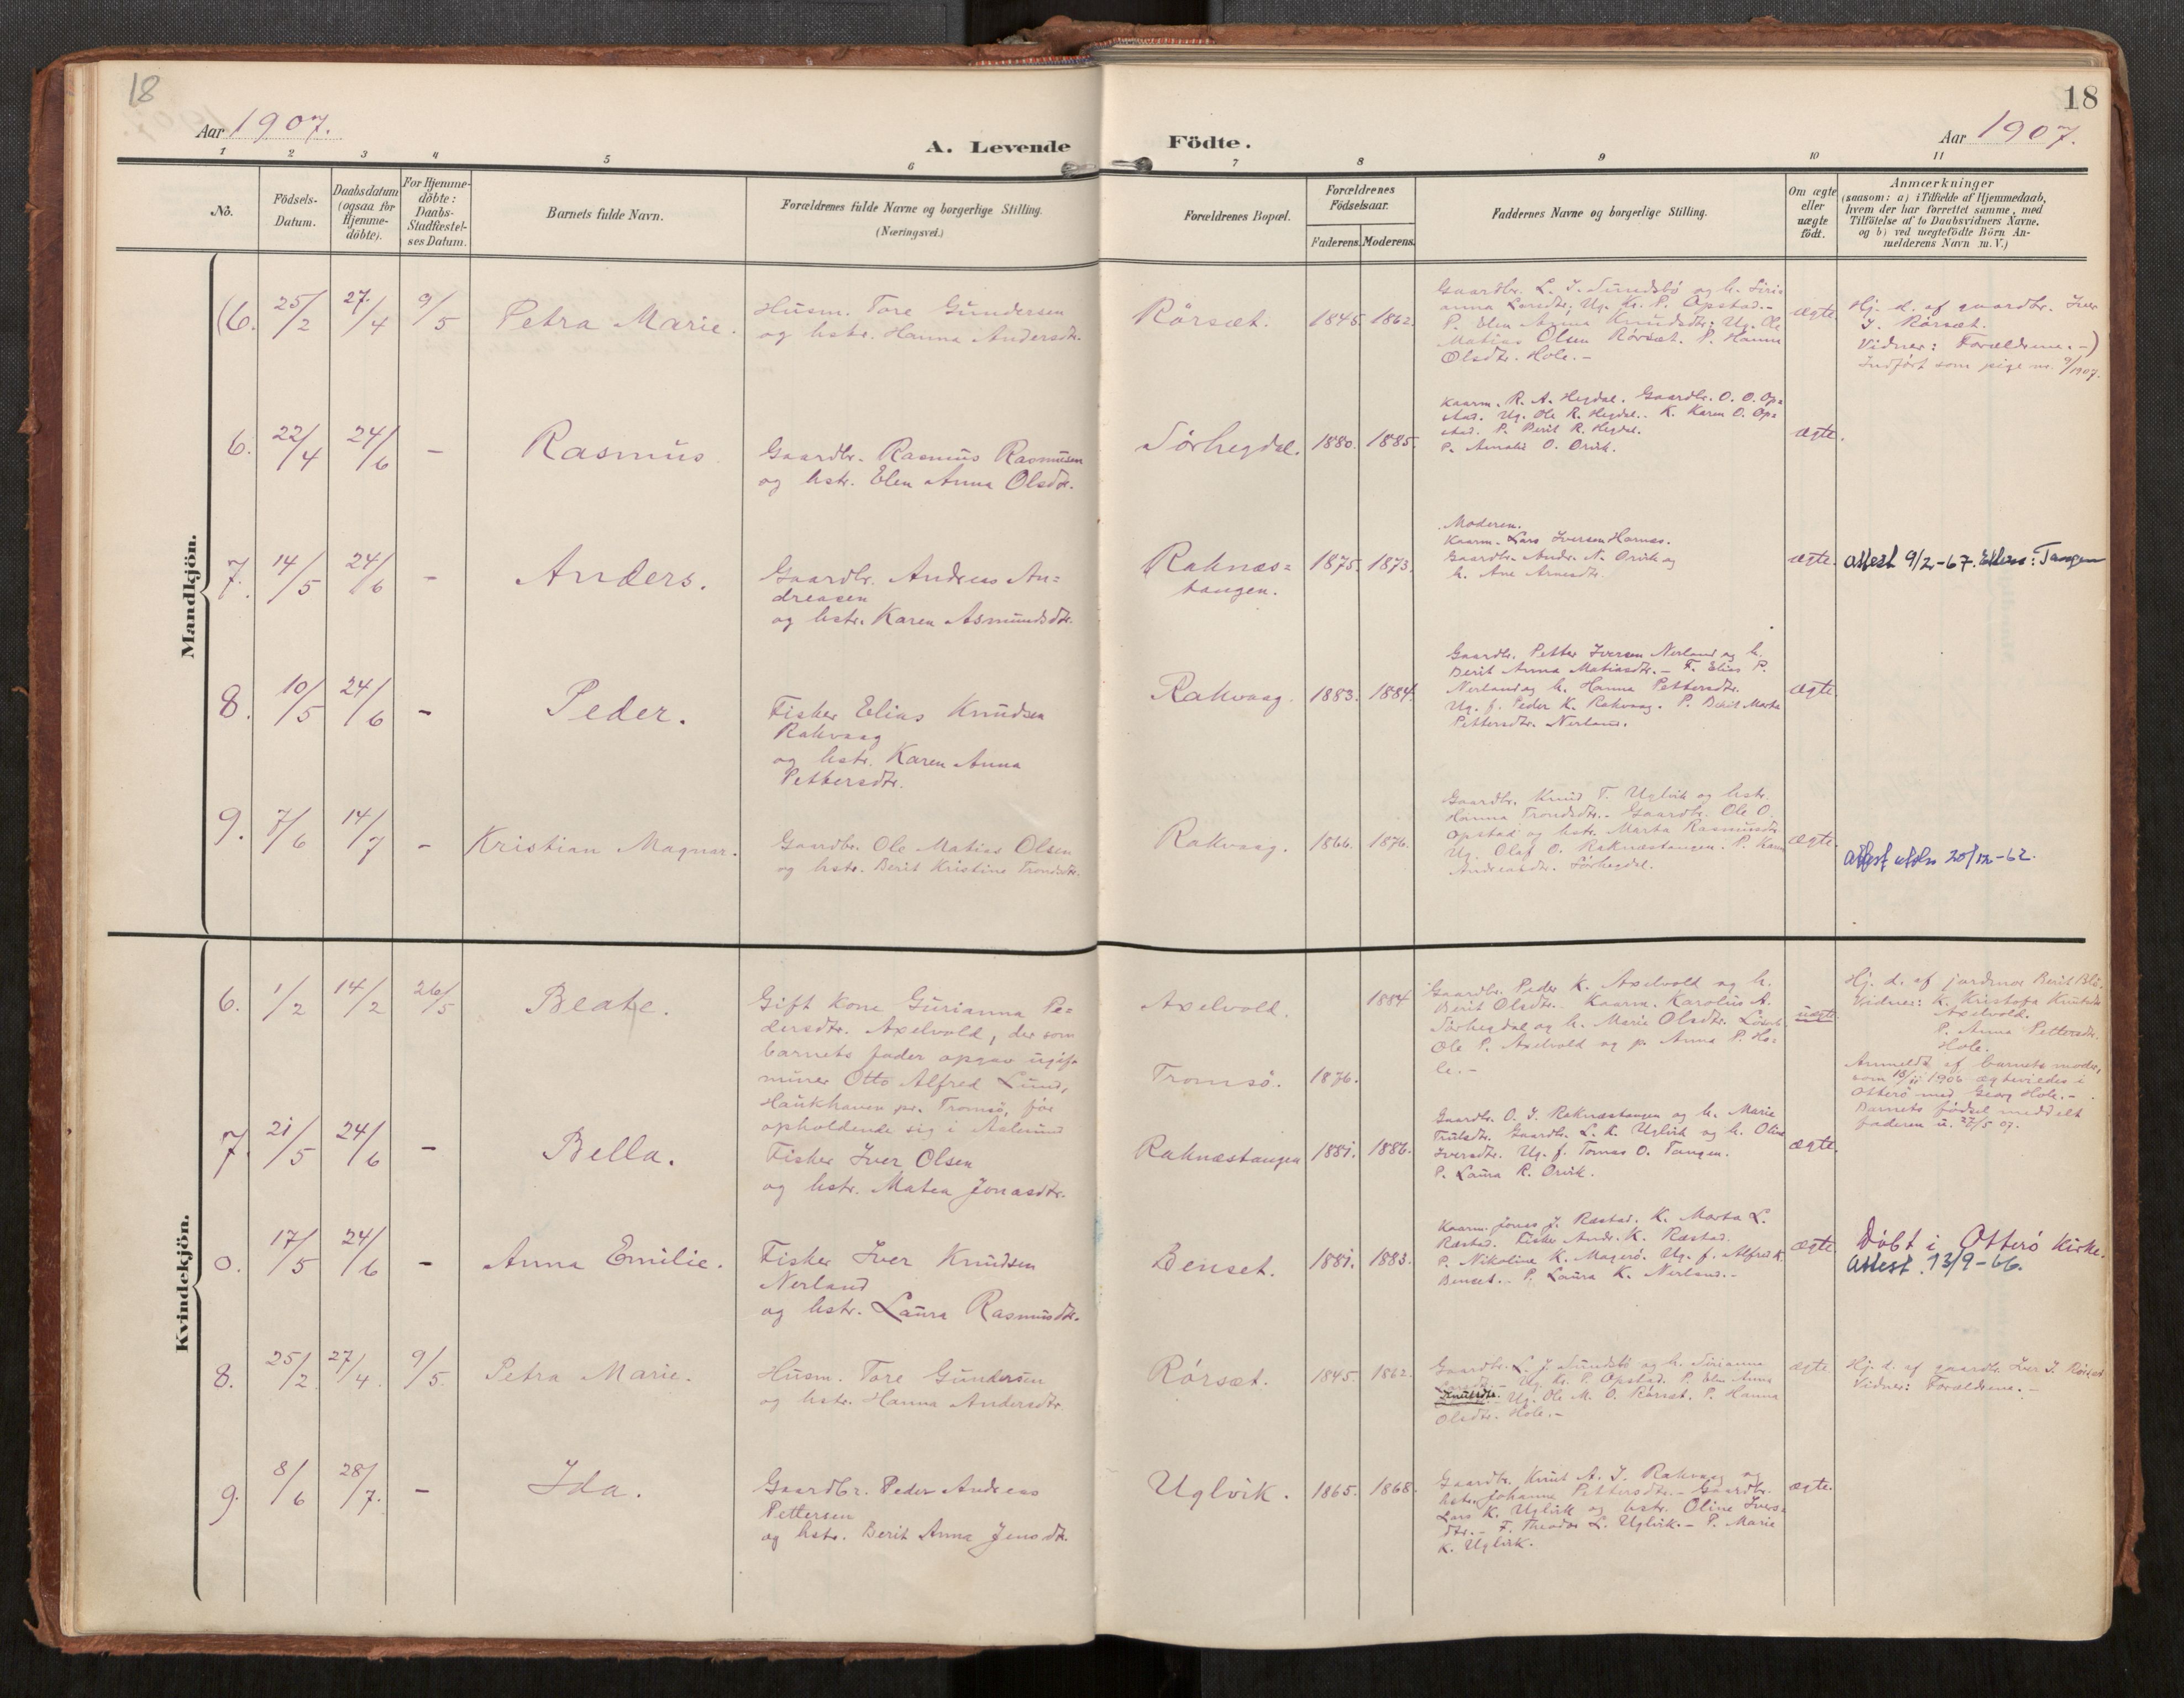 18
Aar 1907.
A. Levende
Födte.
18
Aar 1907.
1 2 3 4 5 6 7 8 9 10 11
No.
Födsels-
Datum.
Daabsdatum
(ogsaa for
Hjemme-
döbte).
For Hjemme-
döbte:
Daabs-
Stadfæstel-
ses Datum.
Barnets fulde Navn.
Forældrenes fulde Navne og borgerlige Stilling.
(Næringsvei.)
Forældrenes Bopæl.
Forældrenes
Födselsaar.
Faderens. Moderens.
Faddernes Navne og borgerlige Stilling.
Om ægte
eller
uægte
födt.
Anmærkninger
(saasom: a) i Tilfælde af Hjemmedaab,
hvem der har forrettet samme, med
Tilföielse af to Daabsvidners Navne.
og b) ved uægtefödte Börn An-
melderens Navn m. V.)
Mandkjön.
(6. 25/2 27/4 9/5 Petra Marie.
Husm. Tore Gundersen
og hstr. Hanna Andersdtr.
Rörsæt. 1845. 1862.
Gaardbr. L. J. Sundsbö og h. Siri-
anna Larsdtr, Ug. Kr. P. Opstad.-
P. Elen Anna Knudsdtr. Ug. Ole
Matias Olsen Rörsæt. P. Hanna
Olsdtr. Hole.-
ægte.
Hj. d. af gaardbr. Iver
J. Rörsæt.
Vidner: Forældrene.-)
Indfört som pige no. 9/1907.
6. 22/4 24/6 - Rasmus.
Gaardbr. Rasmus Rasmusen
og hstr. Elen Anna Olsdtr.
Sörhegdal. 1880. 1885.
Kaarm. R. A. Hegdal. Gaardbr. O. O. Op=
stad. Ug. Ole R. Hegdal. K. Karen O. Op=
stad. P. Berit R. Hegdal.
P. Amalie O. Orvik.
ægte.
7. 14/5 24/6 - Anders.
Gaardbr. Andreas An=
dreasen
og hstr. Karen Asmundsdtr.
Raknæs=
tangen. 1875. 1873.
Moderen.
Kaarm. Lars Iversen Harnes.
Gaardbr. Andr. N. Orvik og
h. Ane Arnesdtr.
ægte.
attest 9/2-67. Tangen
8. 10/5 24/6 - Peder.
Fisker Elias Knudsen
Rakvaag
og hstr. Karen Anna
Pettersdtr.
Rakvaag. 1883. 1884.
Gaardbr. Petter Iversen Nerland og h.
Berit Anna Matiasdtr.- F. Elias P.
Nerland og h. Hanna Pettersdtr.
Ug. f. Peder K. Rakvaag. P. Berit Marta
Pettersdtr. Nerland.
ægte.
9. 7/6 14/7 - Kristian Magnar.
Gaardbr. Ole Matias Olsen
og hstr. Berit Kristine Trondsdtr.
Rakvaag. 1866. 1876.
Gaardbr. Knud T. Uglvik og hstr.
Hanna Trondsdtr.- Gaardbr. Ole O.
Opstad og hstr. Marta Rasmusdtr.
Ug. Olaf O. Raknæstangen. P. Karen
Andreasdtr. Sörhegdal.
ægte.
attest 20/12-62.
Kvindekjön.
6. 1/2 14/2 26/5 Beate.
Gift Kone Gurianna Pe=
dersdtr. Axelvold, der som
barnets fader opgav ugift
minør Otto Alfred Lund,
Haukhaven pr. Tromsö, för
opholdende sig i Aalesund
Axelvold. 1884
Tromsö. 1876.
Gaardbr. Peder K. Axelvold og h.
Berit Olsdtr. Kaarm. Karolius A.
Sörhegdal og h. Marie Olsdtr.
Ole P. Axelvold og p Anna P. Ho=
le.-
uægte
Hj. d. af jordmor Berit
Vidner: K. Kristofa Knutsdtr
Axelvold.
P. Anna Pettersdtr.
Hole.
Anmeldt af barnets moder,
som 18/11 1906 ægteviedes i
Otterö med Georg Hole.-
Barnets födsel meddelt
faderen u. 27/5 07.
7. 21/5 24/6 - Bella.
Fisker Iver Olsen
og hstr. Matea Jonasdtr.
Raknæstangen 1881. 1886.
Gaardbr. O. J. Raknæstangen og h. Marie
Trulsdtr. Gaardbr. L. K. Uglvik og h. Oline
Iversdtr. Ug. f. Tomas O. Tangen.
P. Laura R. Orvik.
ægte.
0. 17/5 24/6 - Anna Emilie.
Fisker Iver Knudsen
Nerland
og hstr. Laura Rasmusdtr.
Benset. 1881. 1883.
Kaarm. Jonas J. Ræstad. K. Marta L.
Ræstad. Fisker Andr. K. Ræstad.
P. Nikoline K. Magerö. Ug. f. Alfred K.
Benset.- P. Laura K. Nerland.-
ægte.
Döbt i Otterö Kirke.
attest 13/9-66.
8. 25/2 27/4. 9/5. Petra Marie.
Husm. Tore Gundersen
og hstr. Hanna Andersdtr.
Rörsæt. 1845. 1862.
Gaardbr. L. J. Sundsbö og h. Sirianna
Larsdtr.- Ug. Kr. P. Opstad. P. Elen Anna
Knutsdtr.- Ug. Ole M. O. Rörsæt. P. Hanna
Olsdtr. Hole.-
ægte
Hj. d. af gaardbr. Iver J. Rörsæt
Vidner: Forældrene.-
9. 8/6 28/7. - Ida.
Gaardbr. Peder Andreas
Pettersen
og hstr. Berit Anna Jensdtr.
Uglvik. 1865. 1868.
Gaardbr. Knut A. J. Rakvaag og
hstr. Johanna Pettersdtr.- Gaardbr.
Lars K. Uglvik og hstr. Oline Ivers-
dtr.- F. Theodor L. Uglvik.- P. Marie
K. Uglvik.
ægte.